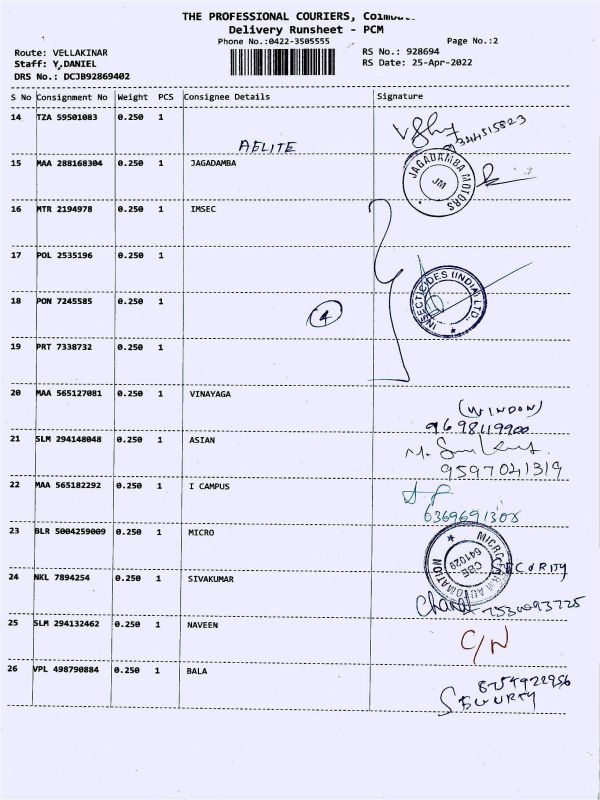 THE PROFESSIONAL COURIERS,
Delivery Runsheet - PCM
Phone No.:0422-3505555 Page No.:2
Route: VELLAKINAR RS No.: 928694
Staff: Y.DANIEL RS Date: 25-Apr-2022
DRS No.: DCJB92869402
S No Consignment No Weight PCS Consignee Details Signature
14 TZA 59501083 0.250 1
AELITE
15 MAA 288168304 0.250 1 JAGADAMBA
JAGADAMBA MOTORS
JM
16 MTR 2194978 0.250 1 IMSEC
17 POL 2535196 0.250 1
INSECTICIDES (INDIA) LTD.
18 PON 7245585 0.250 1
4
19 PRT 7338732 0.250 1
20 MAA 565127081 0.250 1 VINAYAGA
(WINDON)
9698119900
21 SLM 294148048 0.250 1 ASIAN
9597041319
22 MAA 565182292 0.250 1 I CAMPUS
23 BLR 5004259009 0.250 1 MICRO
AUTOMATION
CBE
641029
SECORITY
24 NKL 7894254 0.250 1 SIVAKUMAR
25 SLM 294132462 0.250 1 NAVEEN
C/N
26 VPL 498790884 0.250 1 BALA